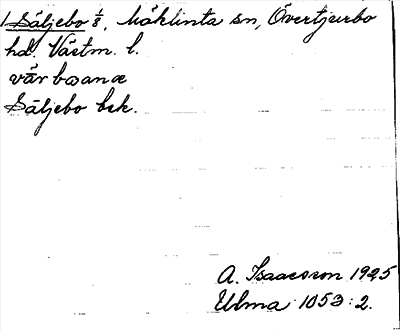 1 Säljebo 1/8, Möklinta sn, Övertjurbo
hd. Västm. l.
vår bωanæ
Säljebo bek.
A. Isaacsson 1925
Ulma 1053:2.